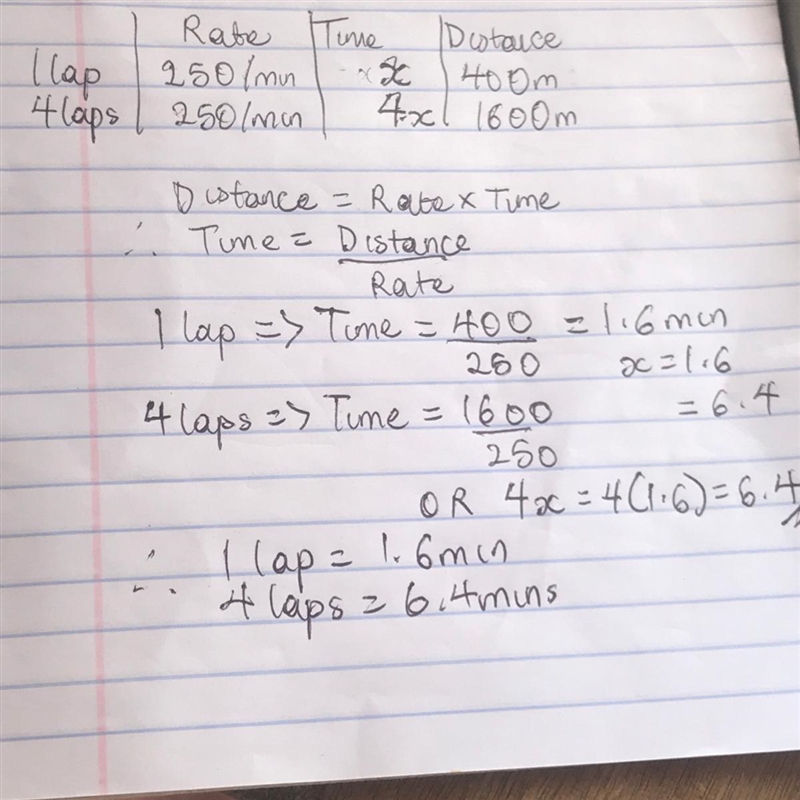 Rate Time Distance
1 lap 250/min x 400m
4 laps 250/min 4x 1600m
Distance = Rate x Time
∴ Time = Distance
Rate
1 lap => Time = 400 = 1.6 min
250 x = 1.6
4 laps => Time = 1600 = 6.4
250
OR 4x = 4(1.6) = 6.4
∴ 1 lap = 1.6min
4 laps = 6.4mins